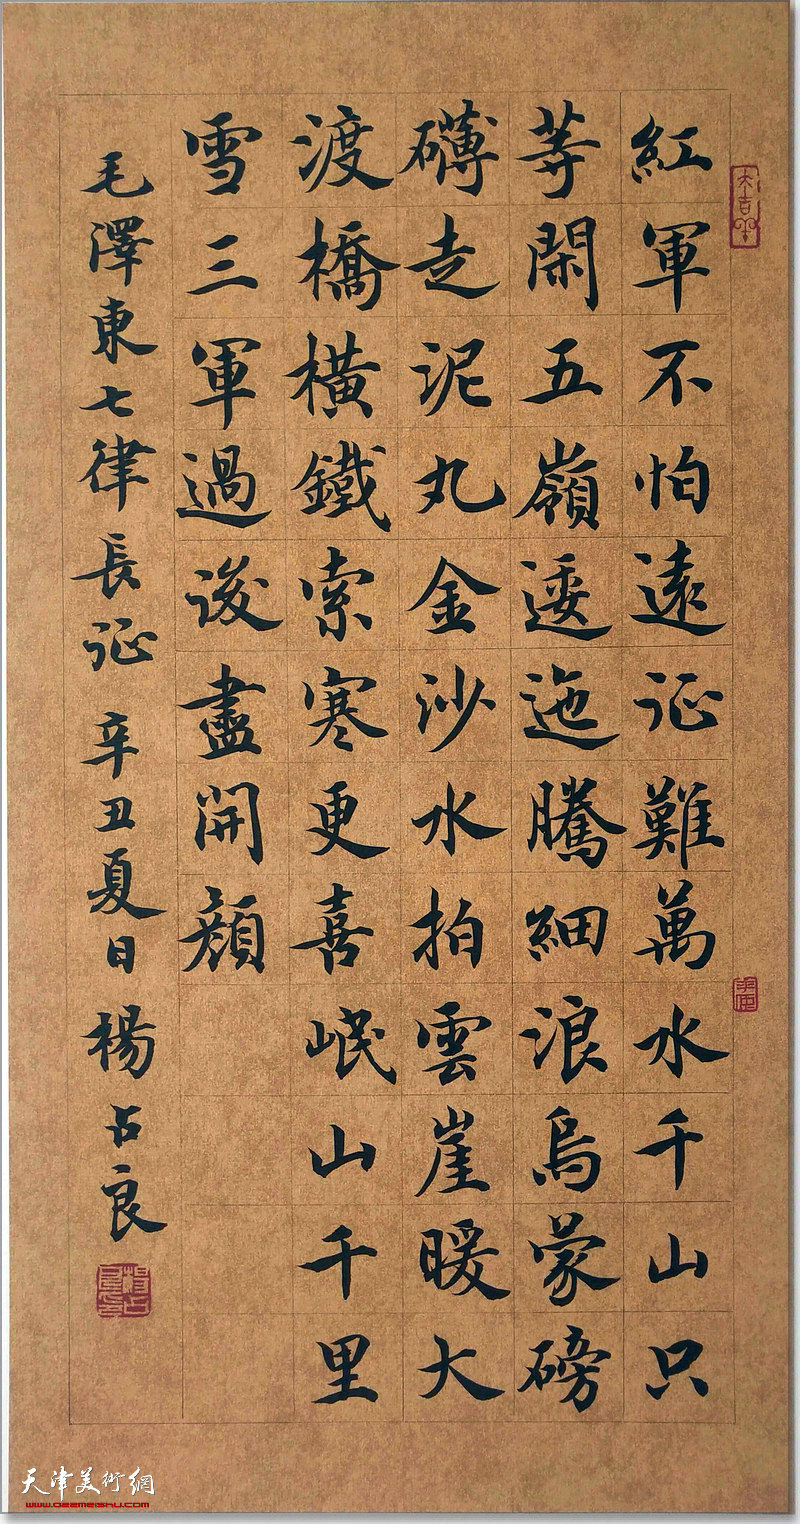 紅軍不怕遠征難萬水千山只
等閑五嶺逶迤騰細浪烏蒙磅
礴走泥丸金沙水拍雲崖暖大
渡橋橫鐵索寒更喜岷山千里
雪三軍過後盡開顏
毛澤東七律長征 辛丑夏日 楊占良
大吉羊
天津美術網
www.022meishu.com